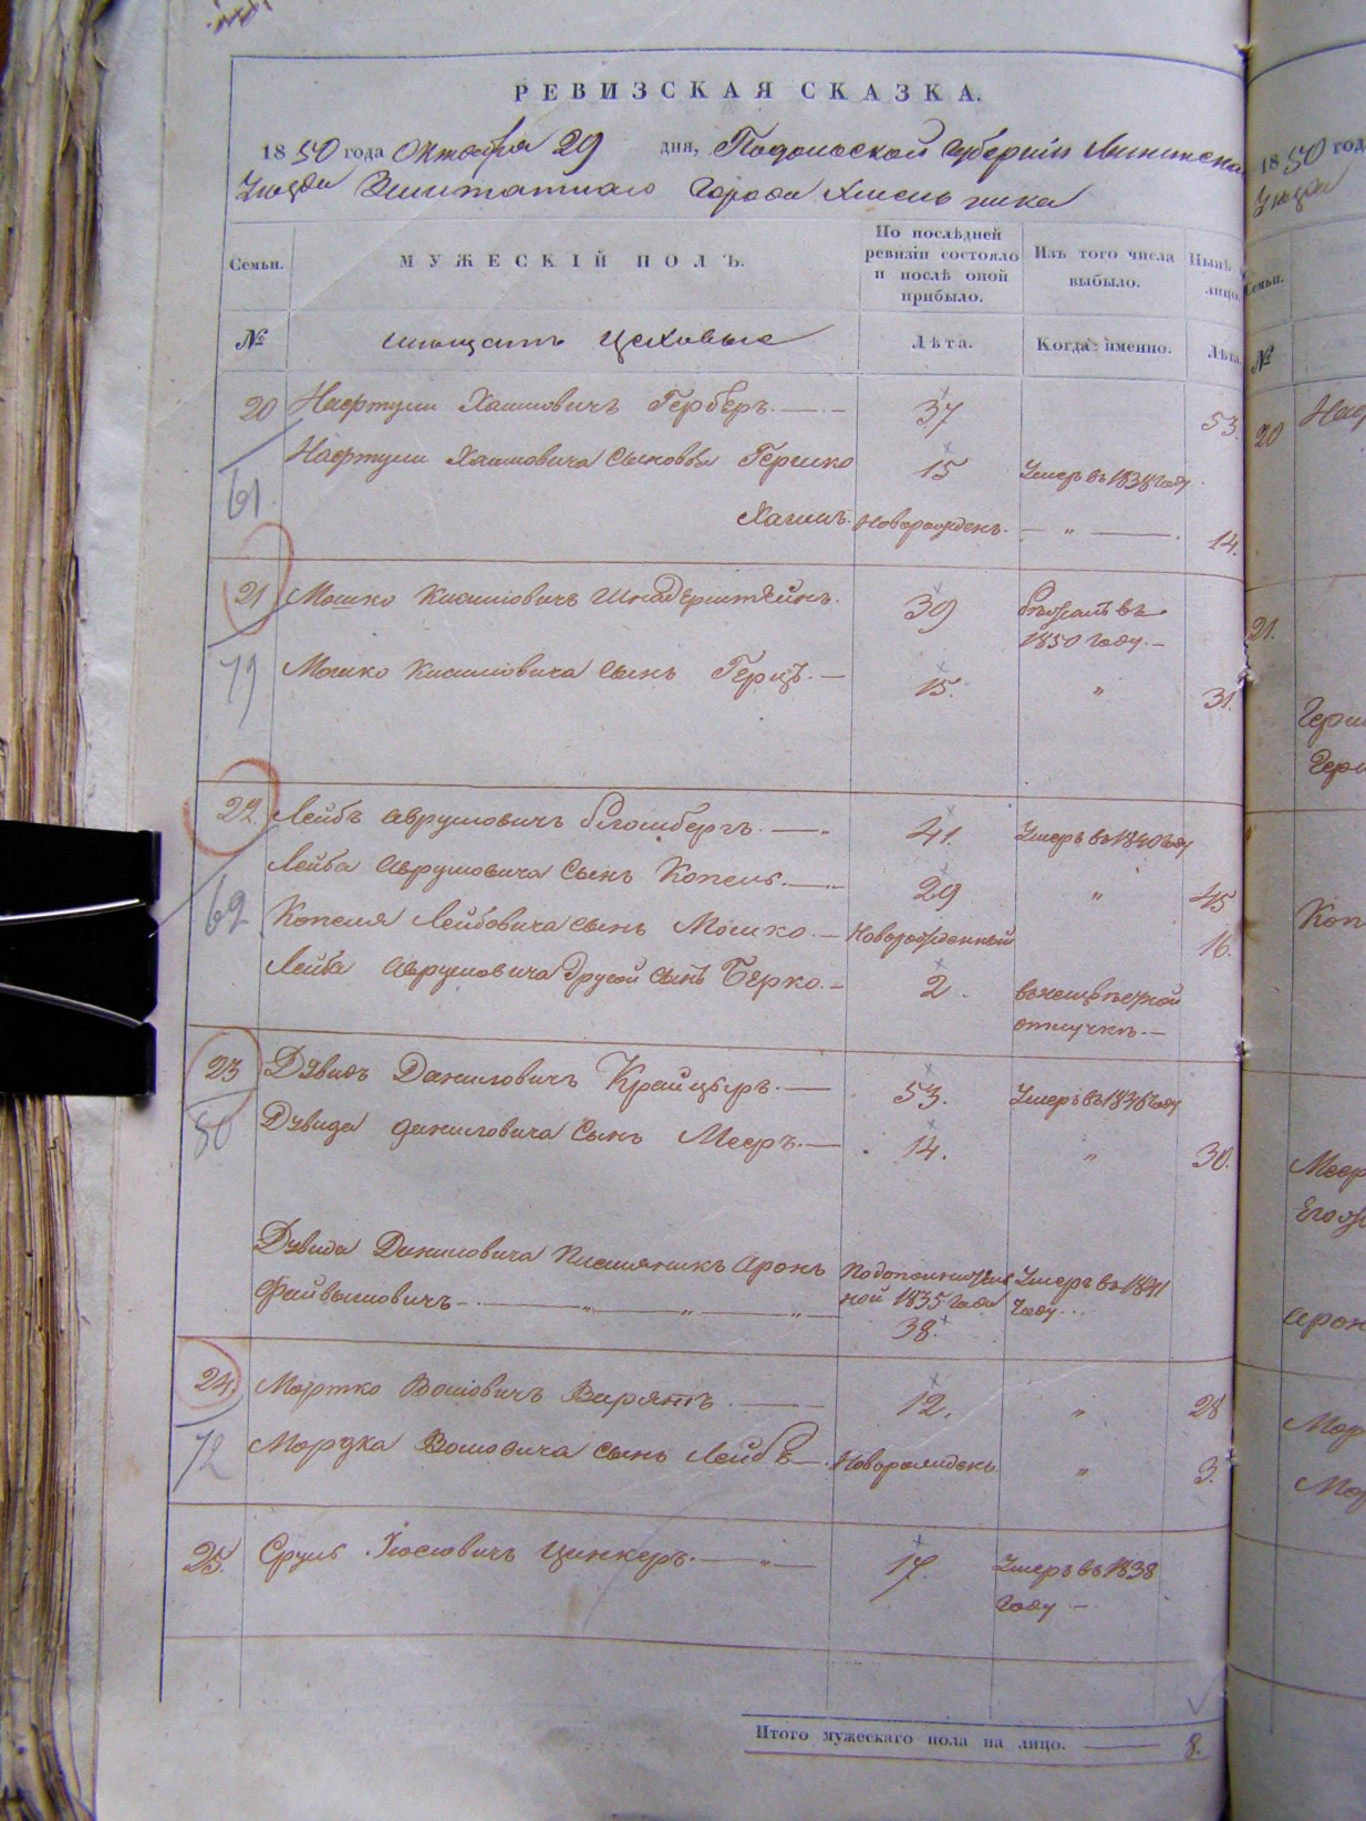 РЕВИЗСКАЯ СКАЗКА.
1850 года Октября 29 дня, Подольской Губернии
Уезда Заштатнаго Города Хмельника
Семьи. МУЖЕСКІЙ ПОЛЪ. По послѣдней ревизіи состояло и послѣ оной прибыло. Изъ того числа выбыло. Нынѣ лицо.
№ Цеховые Лѣта. Когда именно. Лѣта.
20 Нафтули Хаимовичъ Герберъ. 37 53.
Нафтули Хаимовича Сыновья Гершко 15 Умеръ въ 1838 году
61
Хаимъ. Новорожденъ. — „ — 14.
21 Мошко Кисиліовичъ 39 въ
1850 году. —
79 Мошко Кисиліовича Сынъ Герцъ. — 15. „ 31.
22. Лейбъ Аврумовичъ Бломбергъ. — 41. Умеръ въ 1840 году
Лейба Аврумовича Сынъ Копель. — 29 „ 45
62 Копеля Лейбовича Сынъ Мошко. — Новорожденный 16.
Лейба Аврумовича Другой Сынъ Берко. — 2.
отлучкѣ. —
23 Дувидъ Даниловичъ Крайцеръ. — 53. Умеръ въ 1836 году
50 Дувида Даниловича Сынъ Мееръ. — 14. „ 30.
Дувида Даниловича Племяникъ Аронъ Умеръ въ 1841
Файвишовичъ — „ — „ — „ ной 1835 года году..
38.
24. Мортко Волковичъ — 12. „ 28
72 Мордка Сынъ Лейбъ — Новорожденъ „ 3.
25. Сруль Іосіовичъ Цинкеръ. — „ — 17. Умеръ въ 1838
году —
Итого мужескаго пола на лицо. — 8.
1850 год
Уезда
Семьи.
№
20 Наф
21.
Коп
Меер
Арон
Мор
Мор